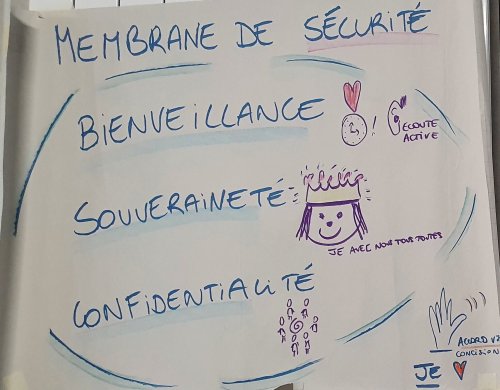 MEMBRANE DE SÉCURITÉ
BIENVEILLANCE
!
ÉCOUTE
ACTIVE
SOUVERAINETÉ
JE AVEC NOUS TOUS TOUTES
CONFIDENTIALITÉ
ACCORD
CONCISION
JE